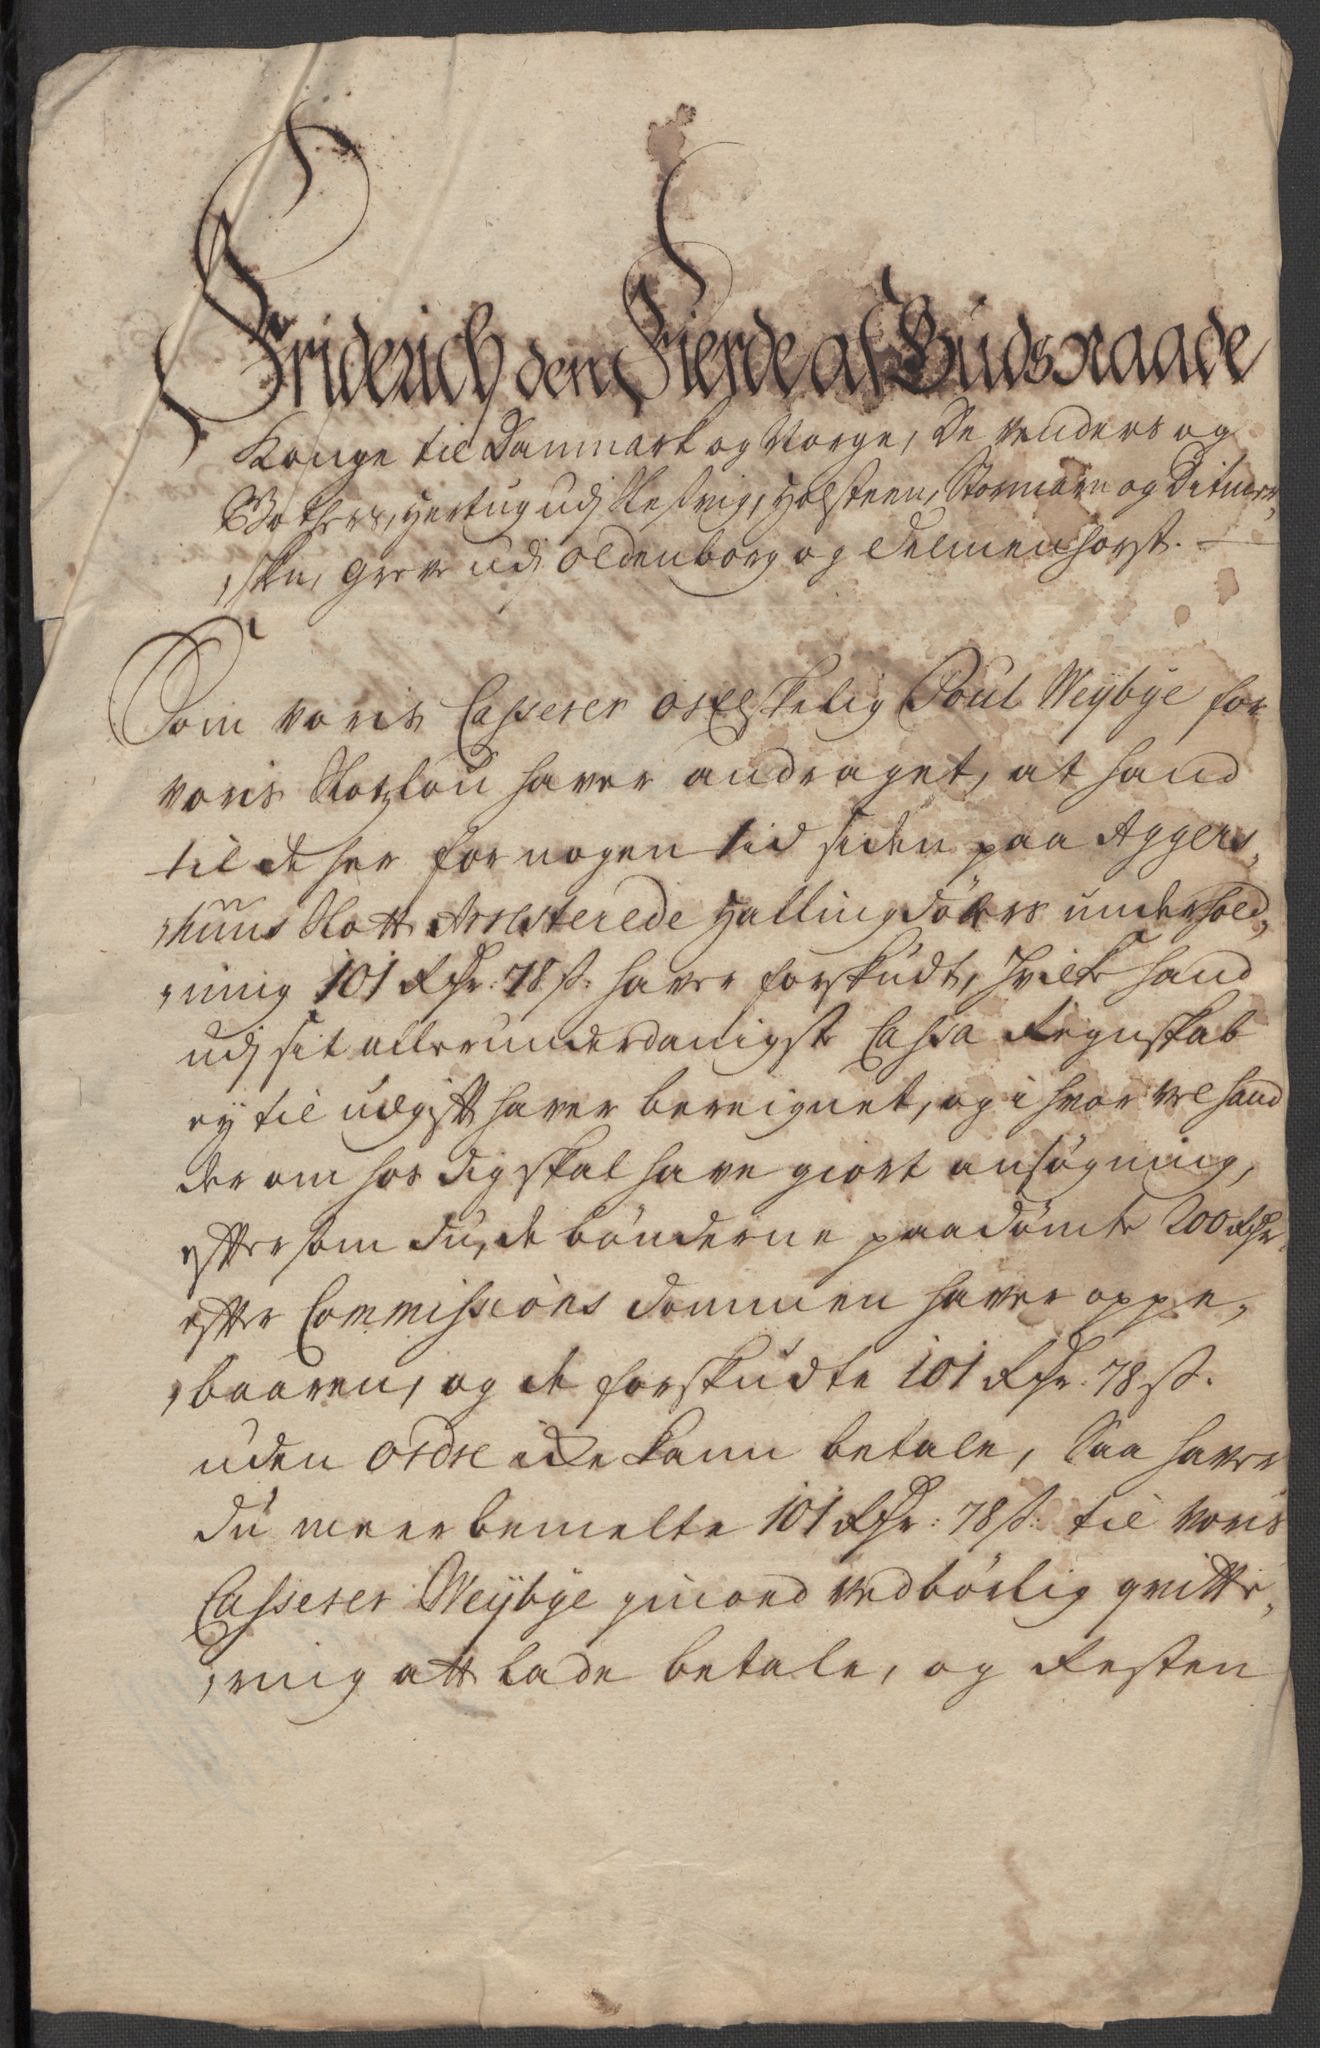 Friderich den Fierde af Guds Naade
Konge til Danmark og Norge, De Venders og
Gothers, Hertug udj Sleßvig, Holsteen, Stormarn og Ditmer,
,sken, Greve udj Oldenborg og Delmenhorst.
Som voris Casserer Poul Weybye for
voris haver andraget, at hand
til de her for nogen tid siden paa Aggers,
,huus Slott Arresterede Hallingdölers underhold,
,ning 101 Rdr: 78 ß: haver forskudt, hvilke hand
udj sit allerunderdanigste Cassa Regnskab
ey til udgift haver bereignet, og i hvor vel hand
der om hos dig skal have giort ansøgning,
efftersom du, de bønderne paadømte 200 Rdr.
effter Commissions dommen haver oppe,
,baaren, og de forskudte 101 Rdr. 78 ß.
uden Ordre icke kann betale, Saa haver
du meerbemelte 101 Rdr: 78 ß: til voris
Casserer Weybye imod vedbørlig qvitte,
,ring att lade betale, og Resten